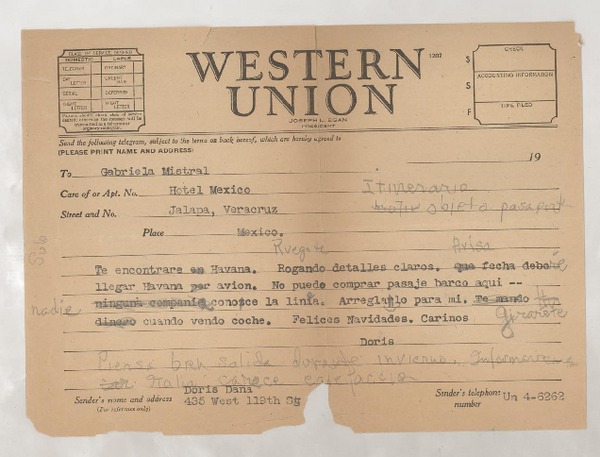 CLASS OF SERVICE DESIRED
DOMESTIC CABLE
TELEGRAM ORDINARY
DAY LETTER URGENT RATE
SERIAL DEFERRED
NIGHT LETTER NIGHT LETTER
WESTERN UNION
1207
JOSEPH L. EGAN
PRESIDENT
$
S
F
CHECK
ACCOUNTING INFORMATION
TIME FILED
Send the following telegram, subject to the terms on back hereof, which are hereby agreed to
(PLEASE PRINT NAME AND ADDRESS)
19
To Gabriela Mistral
Care of or Apt. No. Hotel Mexico
Itinerario
Street and No. Jalapa, Veracruz
sujeto pasaporte
Place Mexico.
Ruegote Avisa
Te encontrare en Havana. Rogando detalles claros. que fecha debo
llegar Havana por avion. No puedo comprar pasaje barco aqui --
nadie ninguna compania conoce la linia. Arreglarlo para mi. Te mando
Girarete
dinero cuando vendo coche. Felices Navidades. Carinos
Doris
Piensa bien salida durante invierno. Informarme
Italia carece calefaccion
Doris Dana
Sender's name and address 435 West 119th Sg
(For reference only)
Sender's telephone number Un 4-6262